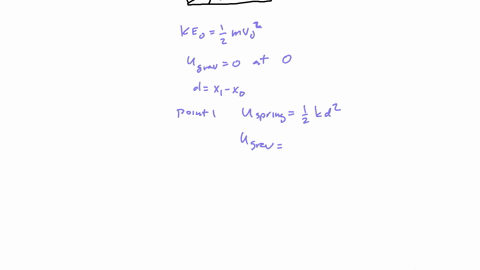 KE₀ = ½ mv₀²
U grav = 0 at 0
d = x₁ - x₀
Point 1 U spring = ½ kd²
U grav =